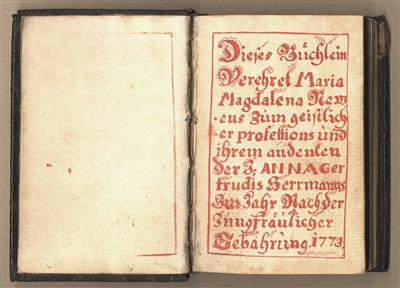 Dieses Büchlein
Verehret Maria
Magdalena New=
eus Zum geistlich
er profeßions und
ihrem andenken
der J. ANNA Ger
trudis Herrmanns
Im Jahr Nach der
Jungfräulicher
Gebährung 1773